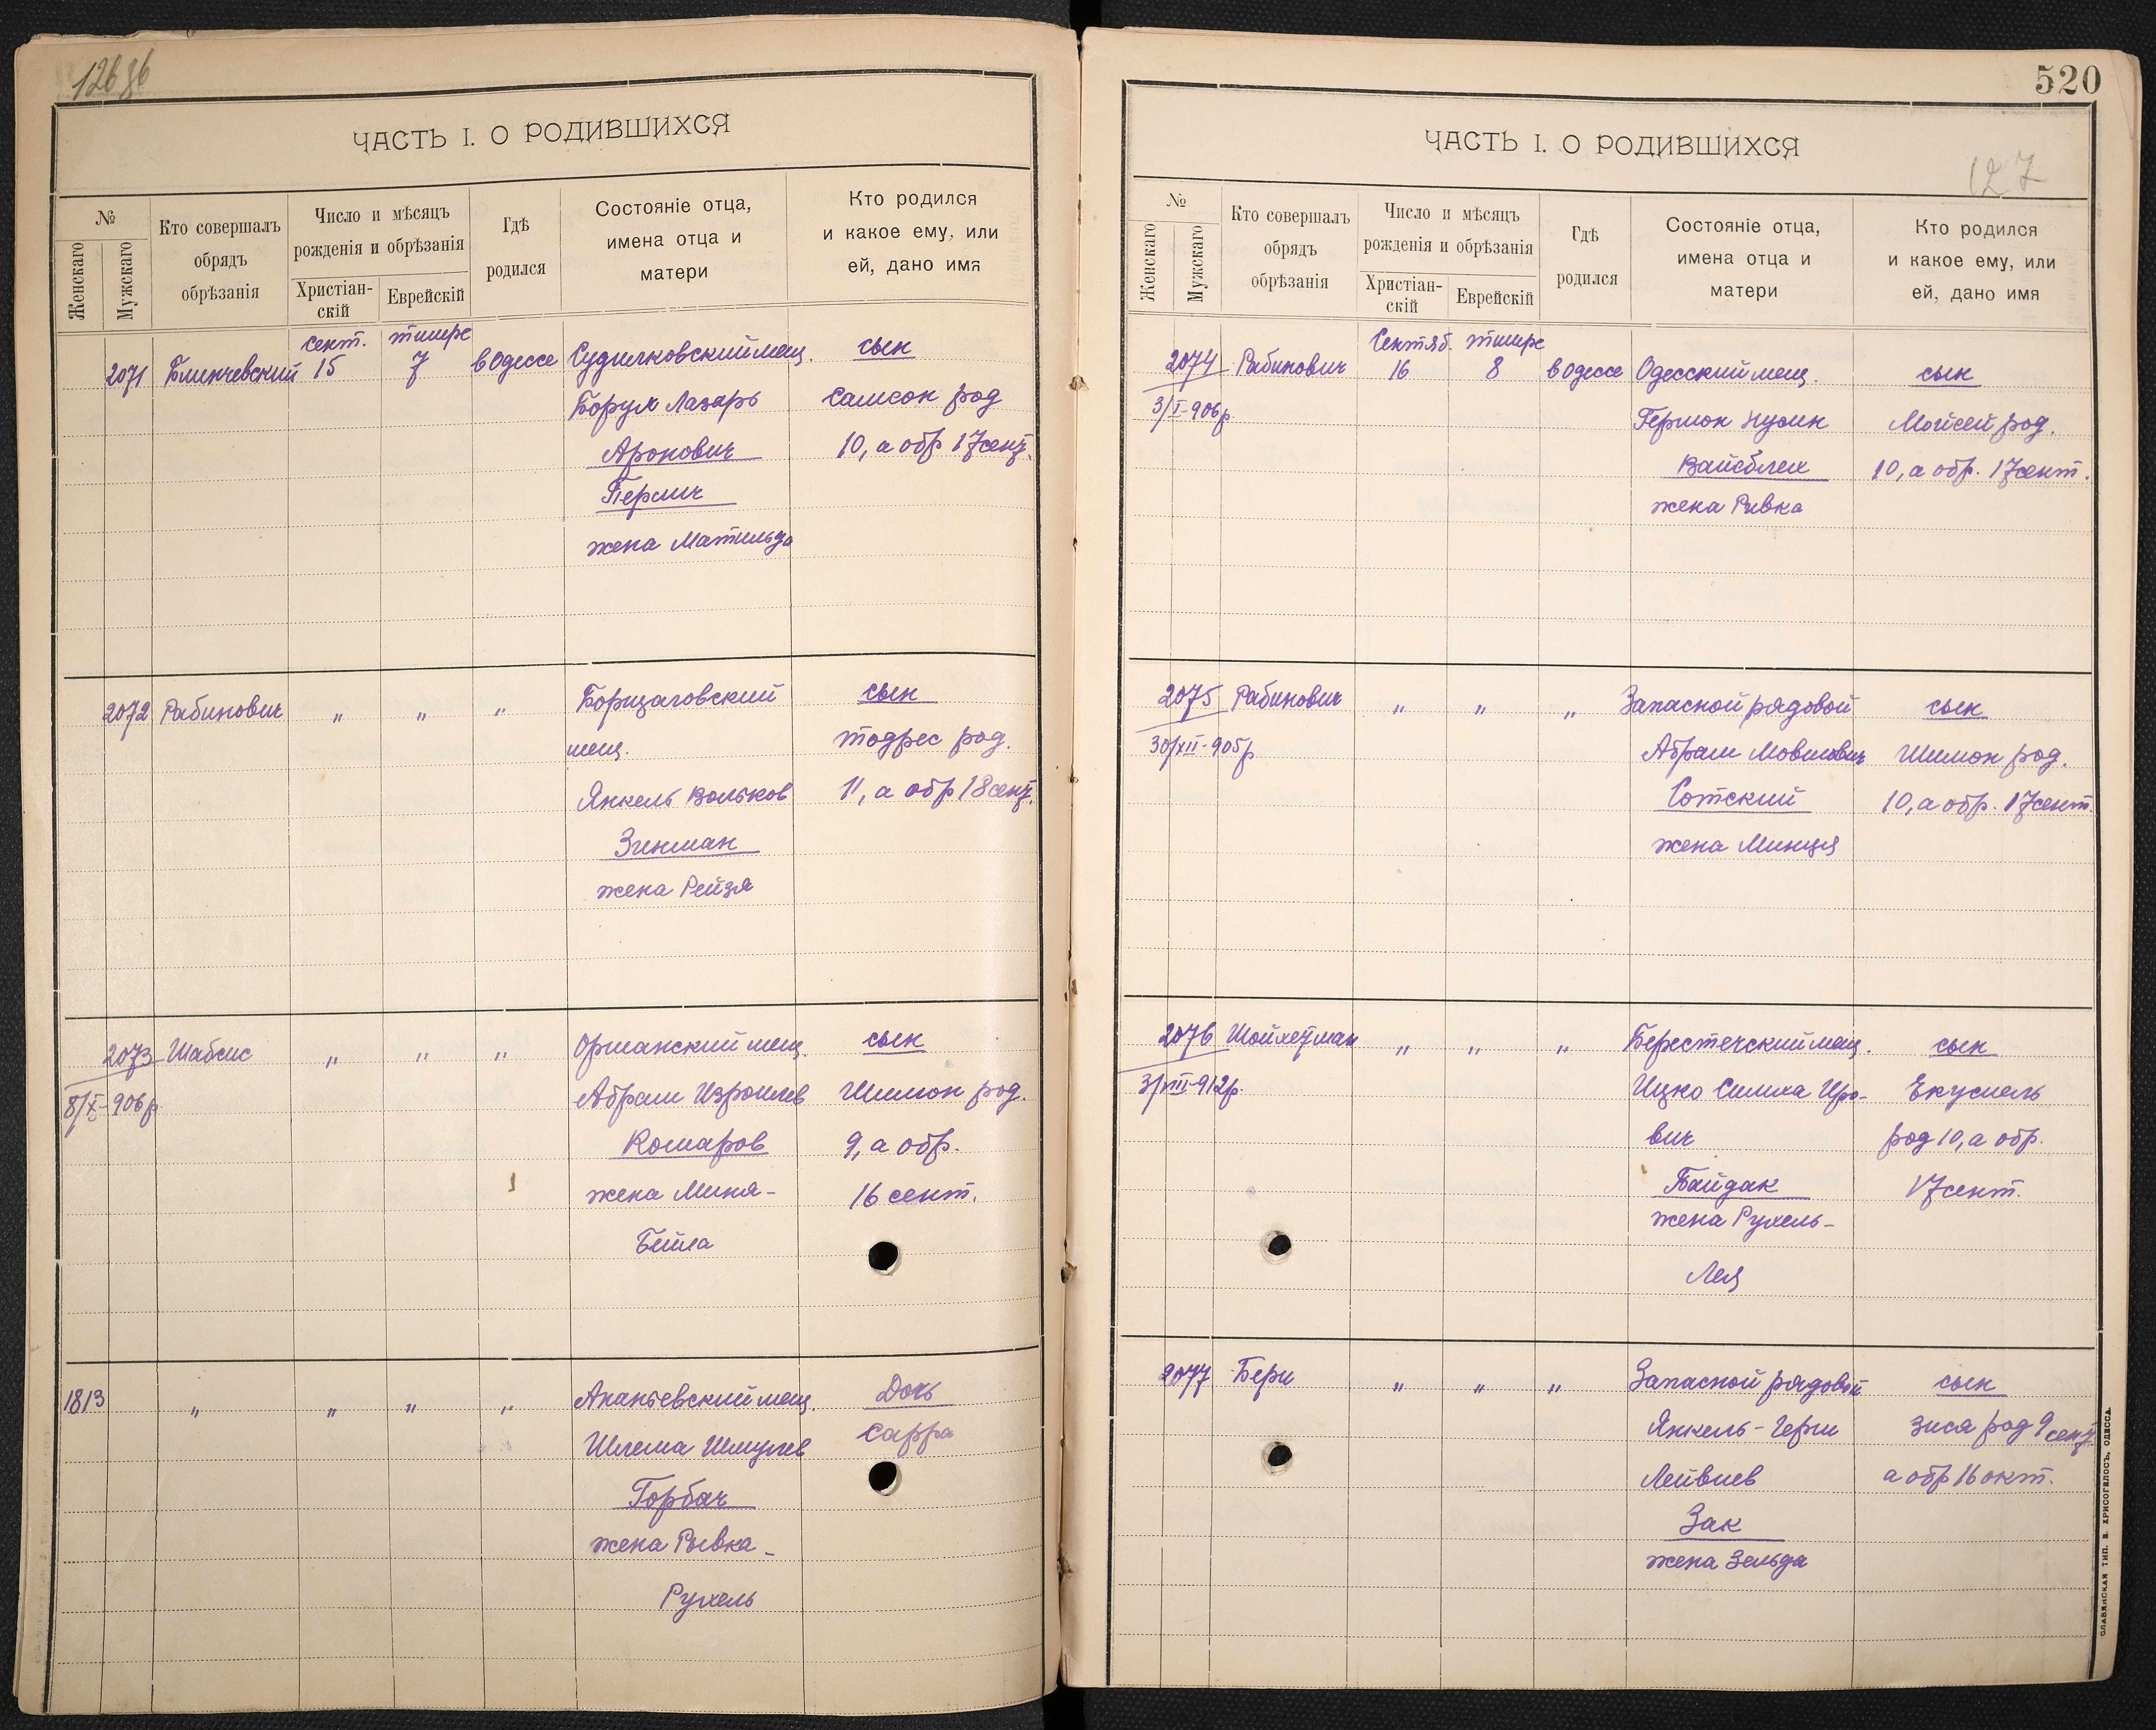 ЧАСТЬ I. О РОДИВШИХСЯ
№
Женскаго
Мужскаго
Кто совершалъ
обрядъ
обрѣзанія
Число и мѣсяцъ
рожденія и обрѣзанія
Христіан-
скій
Еврейскій
Гдѣ
родился
Состояніе отца,
имена отца и
матери
Кто родился
и какое ему, или
ей, дано имя
сент. тишре
2071 Блинчевский 15 7 в Одессе Судилковский мещ. сын
Борух Лазарь Самсон род
Аронович 10, а обр 17 сент.
Перлич
жена Матильда
2072 Рабинович " " " Борщаговский сын
мещ. Тодрес род.
Янкель Вольков 11, а обр 18 сент.
Зинман
жена Рейзя
2073 Шабсис " " " Оршанский мещ. сын
8/X-906 р. Абрам Израилев Шимон род.
Комаров 9, а обр.
жена Миня- 16 сент.
Бейла
1813 " " " " Ананьевский мещ. Дочь
Шлема Шмулев Сарра
Горбач
жена Рывка-
Рухель
520
ЧАСТЬ I. О РОДИВШИХСЯ
127
№
Женскаго
Мужскаго
Кто совершалъ
обрядъ
обрѣзанія
Число и мѣсяцъ
рожденія и обрѣзанія
Христіан-
скій
Еврейскій
Гдѣ
родился
Состояніе отца,
имена отца и
матери
Кто родился
и какое ему, или
ей, дано имя
Сентяб. тишре
2074 Рабинович 16 8 в Одессе Одесский мещ. сын
3/I-906 р. Гершон Нусин Мойсей род.
Вайсблех 10, а обр. 17 сент.
жена Ривка
2075 Рабинович " " " Запасной рядовой сын
30/XII-905 р Абрам Мовшович Шимон род.
Сотский 10, а обр. 17 сент.
жена Минця
2076 Шойхетман " " " Берестечский мещ. сын
3/VIII-912 р. Ицко Симха Иро- Екусиель
вич род 10, а обр.
Байдак 17 сент.
жена Рухель-
Лея
2077 Бери " " " Запасной рядовой сын
Янкель-Герш Зися род 9 сент.
Лейвиев а обр 16 окт.
Зак
жена Зельда
СЛАВЯНСКАЯ ТИП. В. ХРИСОГЕЛОСЪ, ОДЕССА.